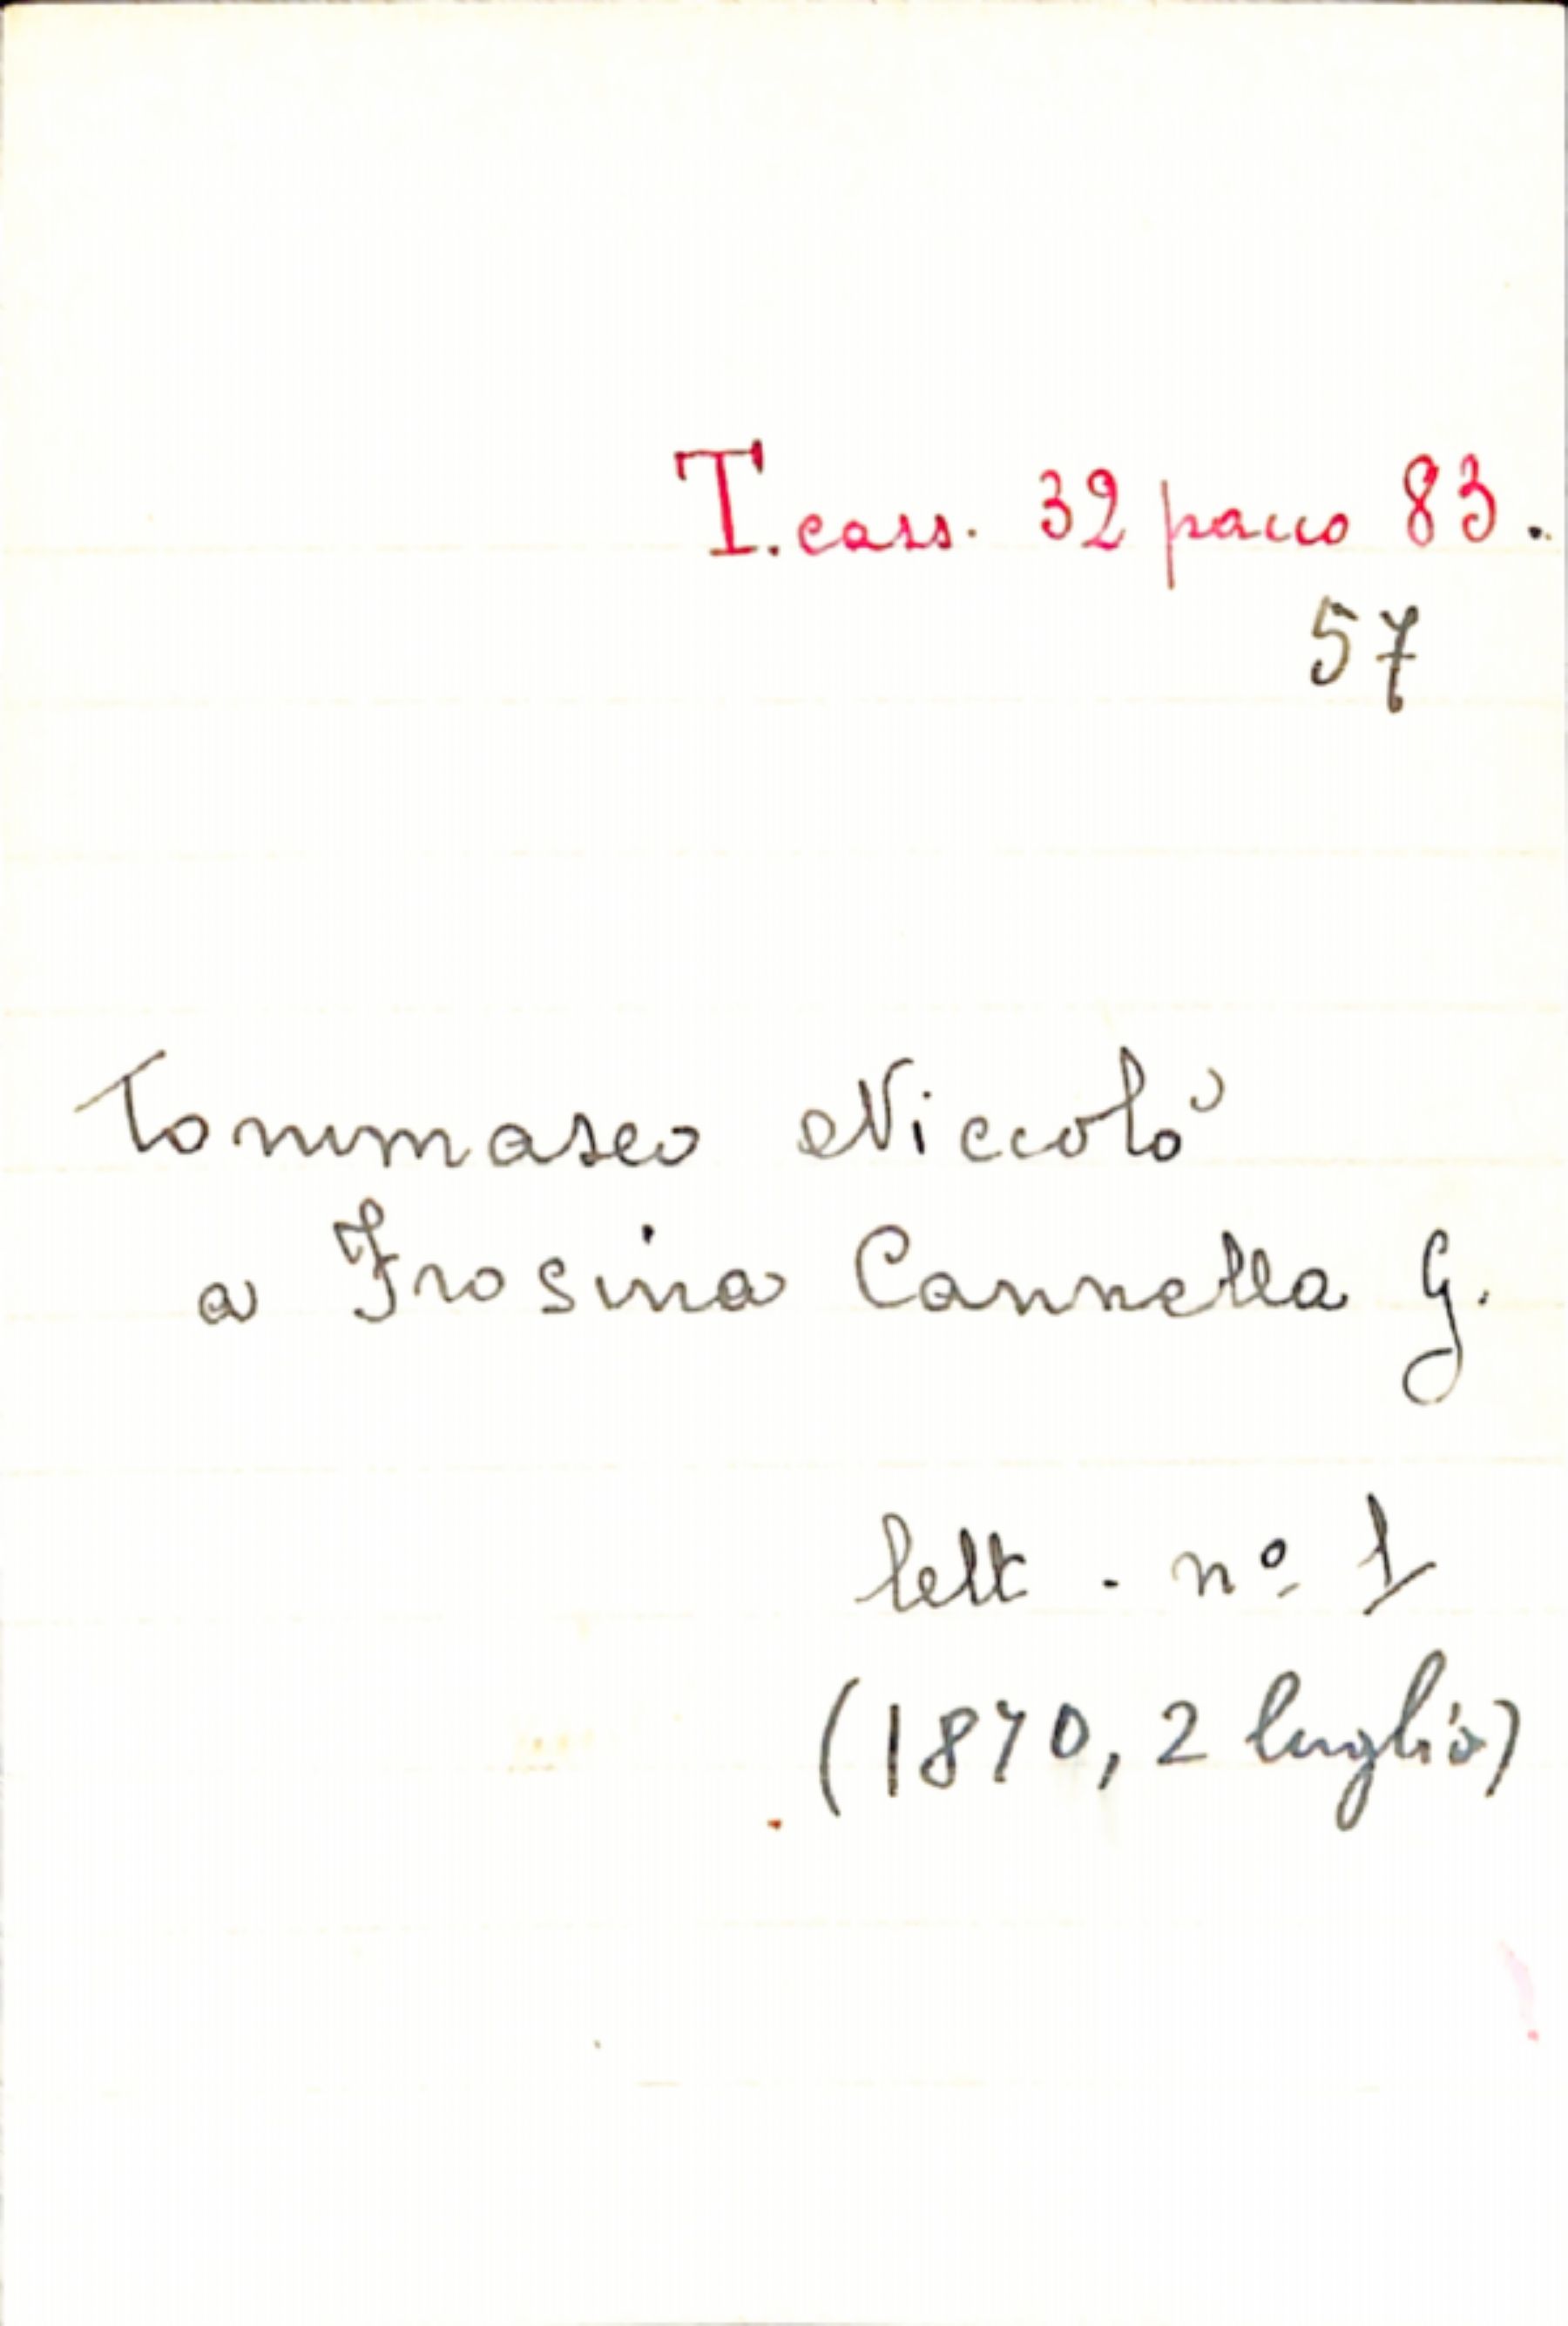 T. cass. 32 pacco 83.
57
Tommaseo Niccolò
a Frosina Cannella G.
lett. nº 1
(1870, 2 luglio)